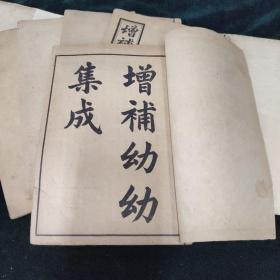 增補幼幼
集成
增補